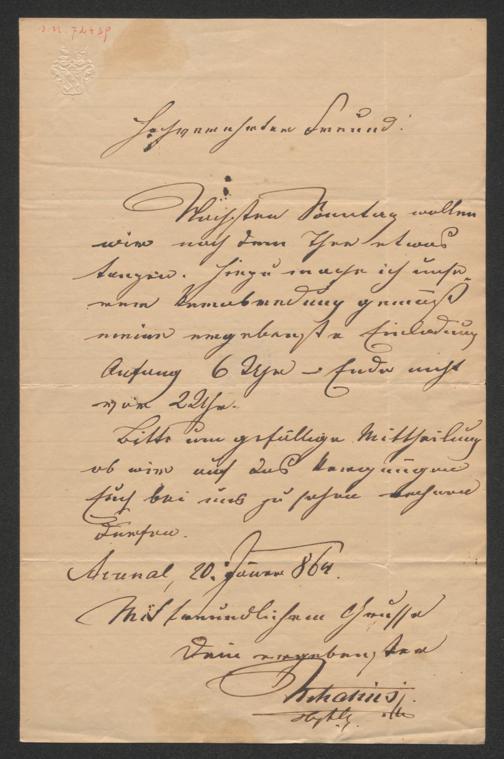 J.N. 72439
Hochverehrter Freund!
Nächsten Sonntag wollen
wir nach dem Thee etwas
tanzen. Hiezu mache ich unse-
rer Verabredung gemäß
meine ergebenste Einladung
Anfang 6 Uhr – Ende nicht
vor 2 Uhr.
Bitte um gefällige Mittheilung
ob wir auf das Vergnügen
Euch bei uns zu sehen rechnen
dürfen.
20. Jäner 864.
Mit freundlichem Grusse
Dein ergebenster